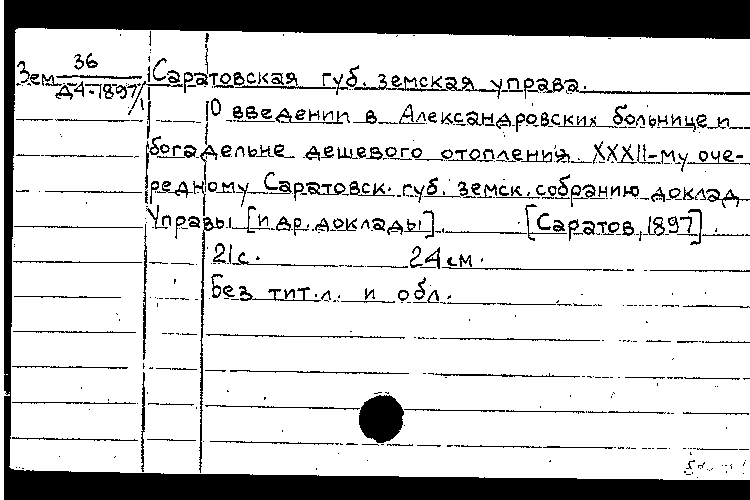 Зем 36
Д4-1897/1
Саратовская губ. земская управа.
О введении в Александровских больнице и
богадельне дешевого отопления. XXXII-му оче-
редному Саратовск. губ. земск. собранию доклад
Управы [и др. доклады]. [Саратов, 1897].
21 с. 24 см.
Без тит. л. и обл.